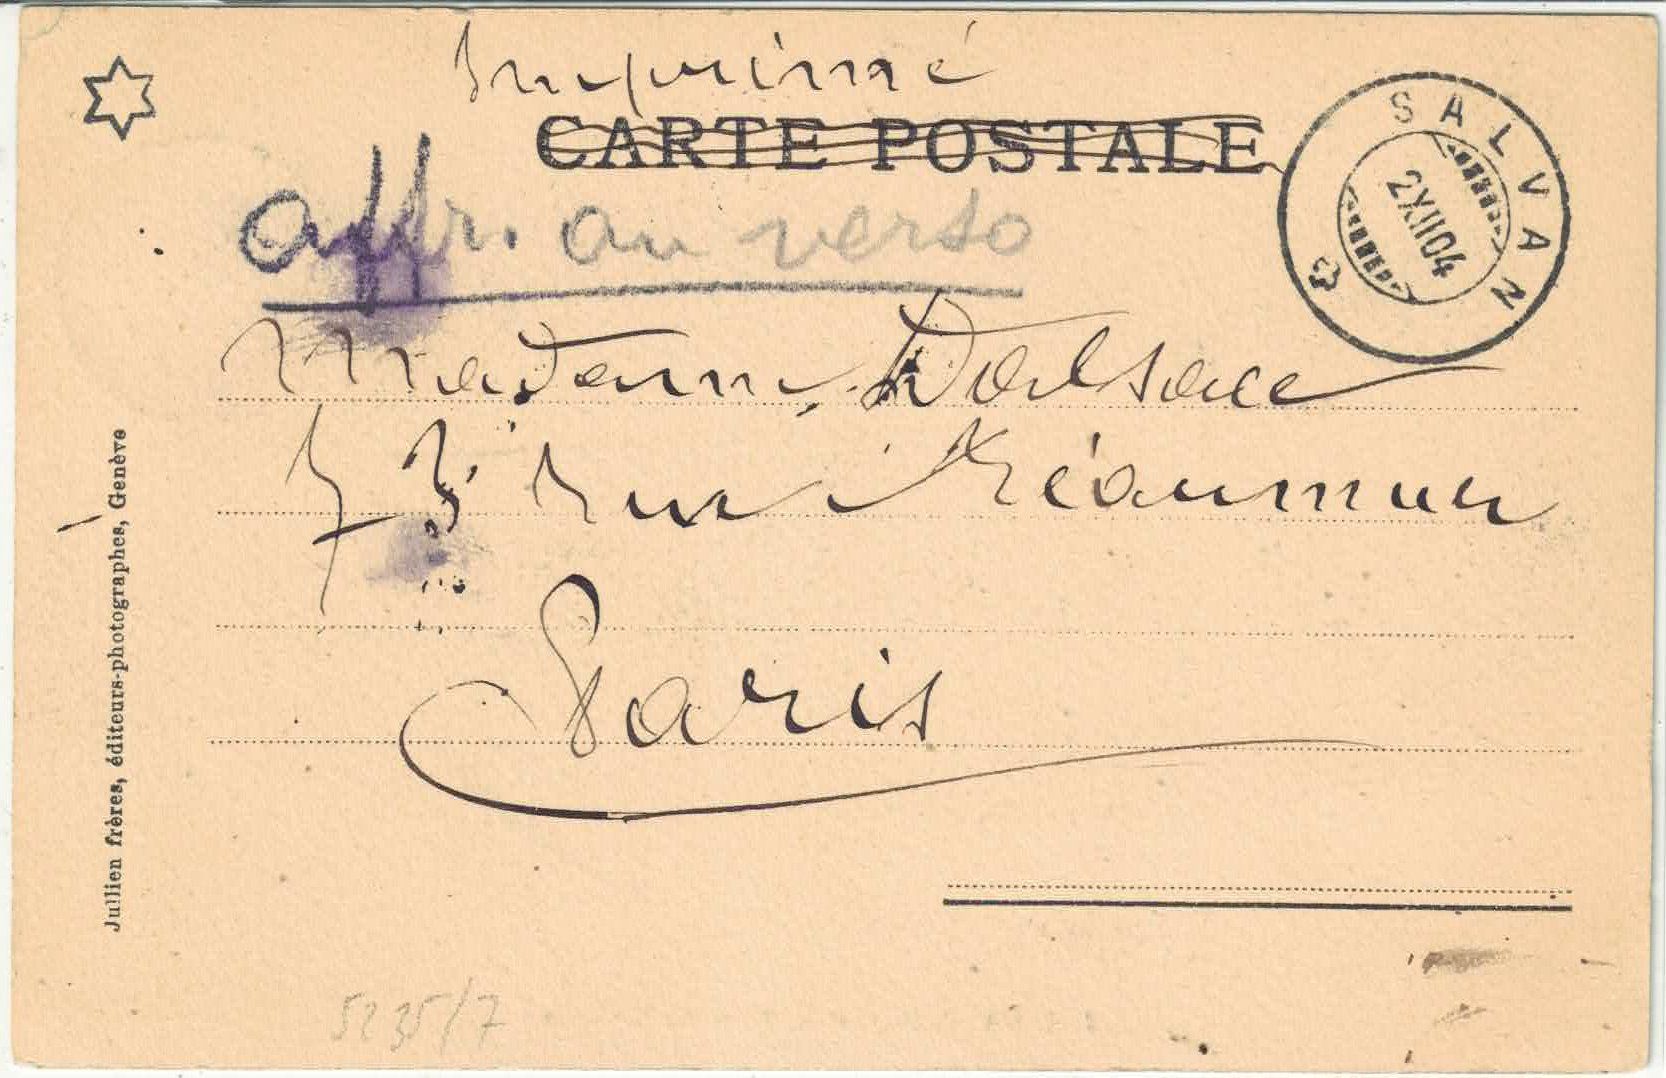 Imprimé
CARTE POSTALE
SALVAN
2XII04
affr. au verso
Madame Dalsace
73 rue Réaumur
Paris
Jullien frères, éditeurs-photographes, Genève
5235/7